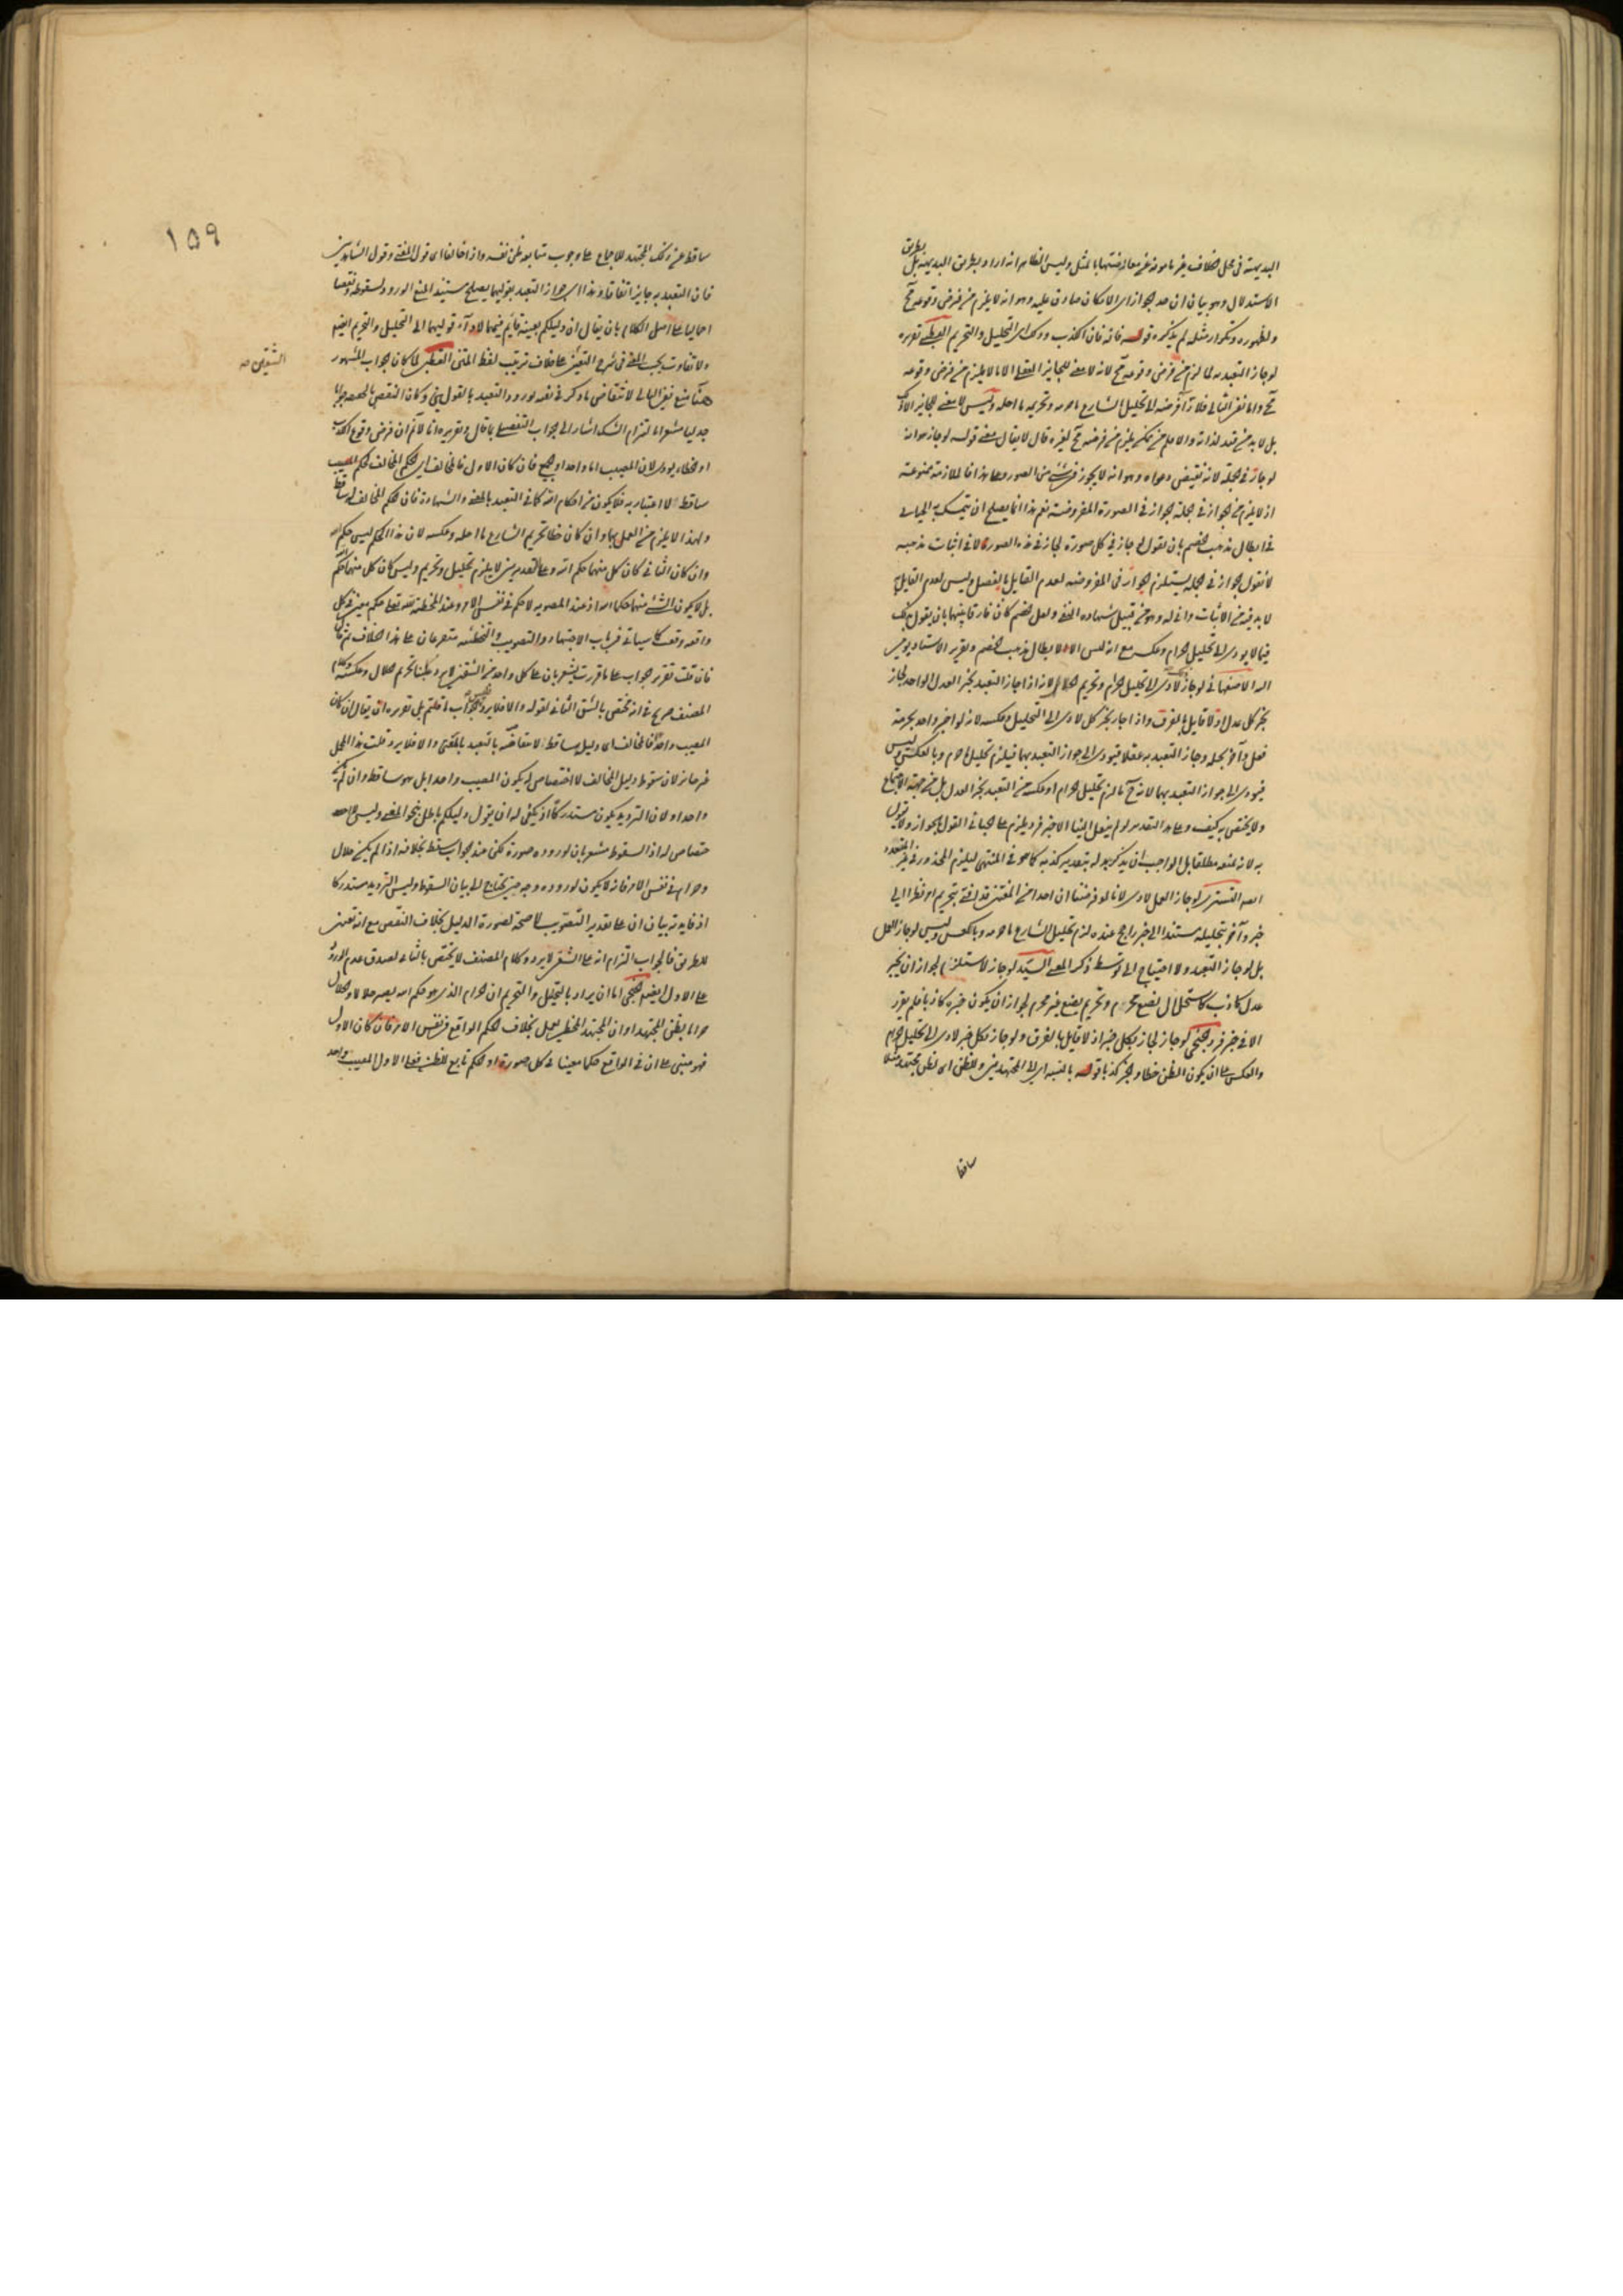 البديهة في محل الخلاف غير مأمونة عن معارضتها بالمثل وليس الظاهر انه اراد بطريق البديهة بل بطريق
الاستدلال وهو بيان ان حد الجواز اى الامكان صادق عليه وهو انه لا يلزم من فرض وقوعه مح
ولظهوره وتكرار مثله لم يذكره قوله فانه فان الكذب وذلك اى التحليل والتحريم القطبى تقريره
لوجاز التعبد به لما لزم من فرض وقوعه مح لانه لا معنى للجايز العقلى الا ما لا يلزم من فرض وقوعه
مح واما نفى التالى فلاداء فرضه الى تحليل الشارع ما حرمه وتحريمه ما احله وليس لا معنى للجايز الا ذلك
بل لا بد من قيد لذاته والا فلم من ممكن يلزم من فرضه مح لغيره قال لا يقال معنى قوله لوجاز هو انه
لوجاز في الجملة لانه نقيض دعواه وهو انه لا يجوز في شئ من الصور وعلى هذا فالملازمة ممنوعة
اذ لا يلزم من الجواز في الجملة الجواز في الصورة المفروضة نعم هذا انما يصلح ان يتمسك به الجبائى
في ابطال مذهب الخصم بان يقول لو جاز في كل صورة لجاز في هذه الصورة لا في اثبات مذهبه
لانقول الجواز في الجملة يستلزم الجواز في المفروضة لعدم القايل بالفصل وليس لعدم القايل
لا بد فيه من الاثبات وانى له وهو من قبيل شهادة النفى ولعل الخصم كان فارقا بينهما بان يقول يجب
فيما لا يودى الى تحليل الحرام وعكسه مع انه ليس الا لابطال مذهب الخصم وتقرير الاستاد يونس
الاصفهانى لوجاز لادى الى تحليل الحرام وتحريم الحلال لانه اذا جاز التعبد بخبر العدل الواحد لجاز
بخبر كل عدل اذ لا قايل بالفرق واذا جاز بخبر كل لادى الى التحليل وعكسه لانه لو اخبر واحد بحرمة
فعل وآخر بحله وجاز التعبد به عقلا فيودى الى جواز التعبد بهما فيلزم تحليل ما حرم وبالعكس وليس
فيودى الى جواز التعبد بهما لانه ح ما لزم تحليل الحرام او عكسه من التعبد بخبر العدل بل من جهة الاجتماع
ولا يختص به كيف وعلى هذا التقدير لو لم ينقل الينا الا خبر فرد يلزم على الجبائى القول بالجواز ولا يقول
به لانه لمنعه مطلقا بل الواجب ان يذكر بدله بتقدير كذبه كما هو في المنتهى ليلزم المحذور في غير المتعدد
التسترى لوجاز العمل لادى لانا لو فرضنا ان احدا من المفتين قد افتى بتحريم امر نظرا الى
خبر وآخر بتحليله مستندا الى خبر راجح عنده لزم تحليل الشارع ما حرمه وبالعكس وليس لوجاز العمل
بل لو جاز التعبد ولا احتياج الى توسط ذكر المفتى السيد لوجاز لاستلزم لجواز ان يخبر
عدل كاذب كاستحلال بضع محرم وتحريم بضع غير محرم لجواز ان يكون خبره كاذبا فلم يقرر
الا في خبر فرد الخنجى لوجاز لجاز بكل خبر اذ لا قايل بالفرق ولو جاز بكل خبر لادى الى تحليل الحرام
والعكس على ان يكون الظن خطا والخبر كذبا قوله بالنسبة اى الى المجتهدين وللظن اى لظن مجتهد مثلا
ساقط
١٥٩
ساقط عن ذلك المجتهد للاجماع على وجوب متابعة ظن نفسه واذا خالفا اى قول المفتى وقول الشاهدين
فان التعبد به جايز اتفاقا وهذا اى جواز التعبد بقوليهما يصلح سنيد المنع الورود ولسقوطه ونقضا
اجماليا على اصل الكلام بان يقال ان دليلكم بعينه قايم فيهما لاداء قوليهما الى التحليل والتحريم ايضا
ولا تفاوت بحسب المعنى في شرحى التعين على خلاف ترتيب لفظ المتن القطبى لما كان الجواب المشهور
الشقين صه
هنا منع نفى التالى لانتقاض ما ذكر في نفيه لورود التعبد بالقول في وكان النقض بالجمعه جوابا
جدليا مشعرا بالتزام الشك اشار الى جواب التفصيلى ما قال وتقريره انا لا نم ان فرض وقوع الكذب
او الخطاء يودى لان المصيب اما واحد او جميع فان كان الاول فالمخالف اى الحكم المخالف لحكم المصيب
ساقط لا اعتبار به فلا يكون من احكام الله كما في التعبد بالمفتى والشهادة فان الحكم المخالف فيه ساقط
ولهذا لا يلزم من العمل بهما وان كان خطا تحريم الشارع ما احله وعكسه لان هذا الحكم ليس حكم الله
وان كان الثانى كان كل منهما حكم الله وعلى التقديرين لا يلزم تحليل وتحريم وليس كان كل منهما حكم الله
بل لا يكون الشئ منهما حكما لله اذ عند المصوبه لا حكم في نفس الامر وعند المخطئة لله تعالى حكم معين في كل
واقعة وقعت كما سياتى في باب الاجتهاد والتصويب والتخطئه متفرعان على هذا الخلاف ثم قال
فان قلت تقرير الجواب على ما قررت يشعر بان على كل واحد من الشقين لا يرد علينا تحريم حلال وعكسه وكلام
المصنف صريح في انه يختص بالشق الثانى لقوله والا فلا يرد قلت الجواب ما قلتم بل تقريره ان يقال ان كان
المصيب واحدا فالمخالف اى دليله ساقط لانتقاضه بالتعبد بالمفتى والا فلا يرد قلت هذا المحل
غير جايز لان سقوط دليل المخالف لا اختصاص له بكون المصيب واحدا بل هو ساقط وان لم يكن
واحدا ولان الترديد يكون مستدركا اذ يكفى له ان يقول دليلكم باطل بنحو المفتى وليس لا
اختصاص له اذ السقوط مشعر بان لوروده صورة لكن عند الجواب سقط بخلافه اذا لم يكن حلال
وحرام في نفس الامر فانه لا يكون لوروده وجه حتى يحتاج الى بيان السقوط وليس الترديد مستدركا
اذ فايدته بيان ان على تقدير التصويب لا صحة لصورة الدليل بخلاف النقض مع انه تعيين
للطريق فالجواب التزام انه على الشقين لا يرد وكلام المصنف لا يختص بالثانى لصدق عدم الورود
على الاول ايضا الخنجى اما ان يراد بالتحليل والتحريم ان الحرام الذى هو حكم الله يصير حلالا والحلال
حراما بظن المجتهد او ان المجتهد المخطى يعمل بخلاف الحكم الواقع في نفس الامر فان كان الاول
فهو مبنى على ان في الواقع حكما معينا في كل صورة او الحكم تابع للظن فعلى الاول المصيب واحد